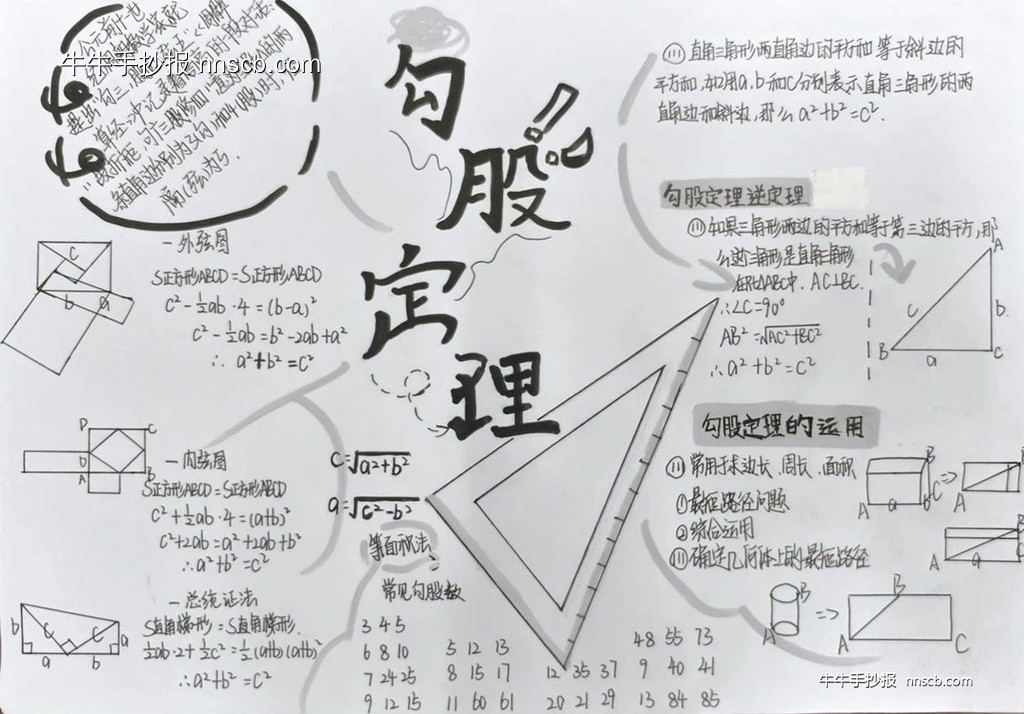 牛牛手抄报 nnscb.com
公元前十
勾股定理
(1)直角三角形两直角边的平方和等于斜边的
平方和,如用a,b和c分别表示直角三角形的两
直角边和斜边,那么a²+b²=c².
勾股定理逆定理
(1)如果三角形两边的平方和等于第三边的平方,那
么这个三角形是直角三角形
在Rt△ABC中,AC⊥BC.
∴∠C=90°
AB²=√AC²+BC²
∴a²+b²=c²
A
c
b
B
a
C
一外弦图
S正方形ABCD=S正方形ABCD
c²-½ab·4=(b-a)²
c²-½ab=b²-2ab+a²
∴a²+b²=c²
C
b
a
一内弦图
S正方形ABCD=S正方形ABCD
c²+½ab·4=(a+b)²
c²+2ab=a²+2ab+b²
∴a²+b²=c²
D
C
A
B
一总统证法
S直角梯形=S直角梯形.
½ab·2+½c²=½(a+b)(a+b)
∴a²+b²=c²
b
c
c
a
a
b
c=√a²+b²
a=√c²-b²
等面积法
常见勾股数
3 4 5
6 8 10
7 24 25
9 12 15
5 12 13
8 15 17
11 60 61
12 35 37
20 21 29
48 55 73
9 40 41
13 84 85
勾股定理的运用
(1)常用于求边长、周长、面积
①最短路径问题
②综合运用
(11)确定几何体上的最短路径
A
a
B
C
=>
A
A
a
B
A
=>
B
A
C
牛牛手抄报 nnscb.com